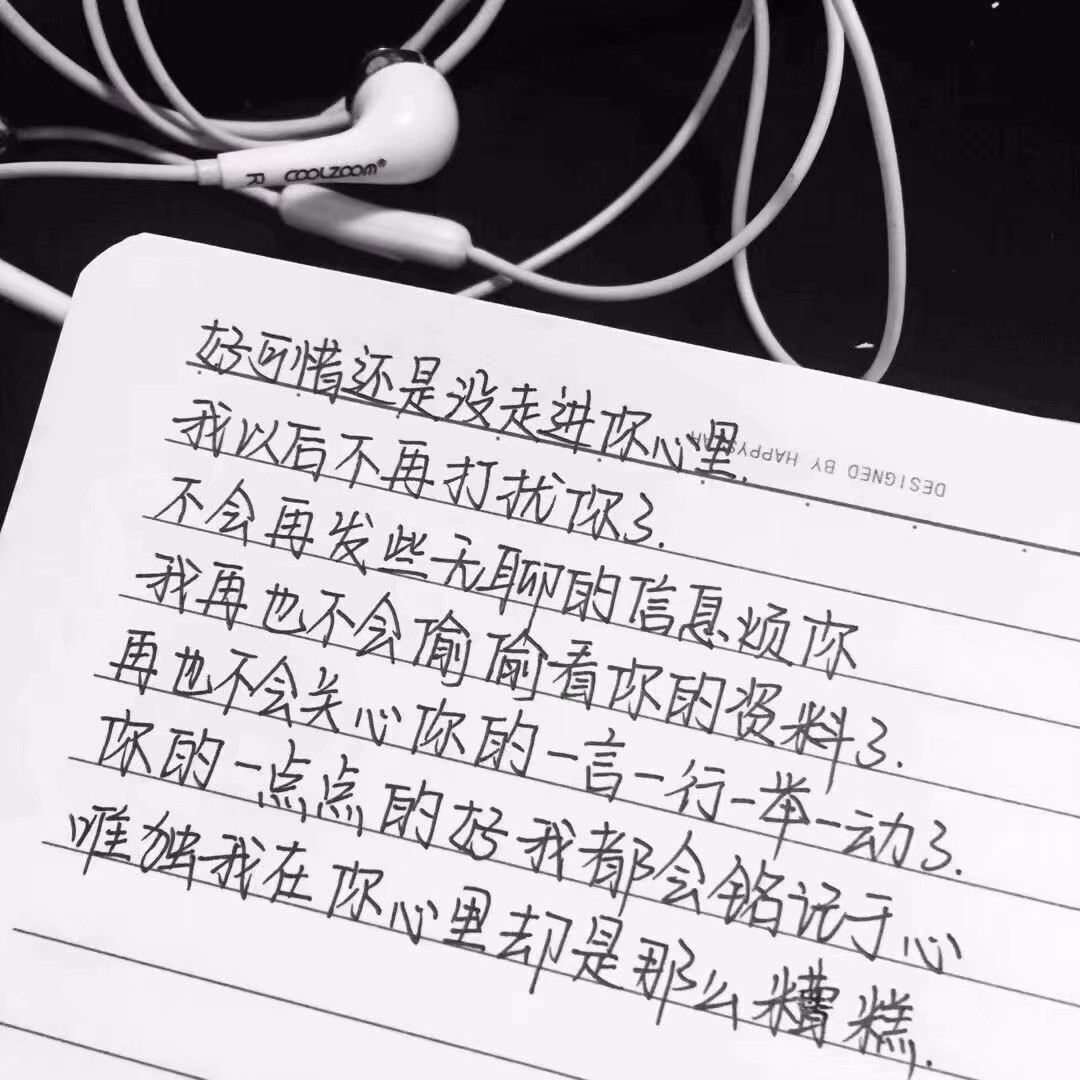 R COOLZOOM®
DESIGNED BY HAPPYS
好可惜还是没走进你心里.
我以后不再打扰你了.
不会再发些无聊的信息烦你
我再也不会偷偷看你的资料了.
再也不会关心你的一言一行一举一动了.
你的一点点的好我都会铭记于心
唯独我在你心里却是那么糟糕.